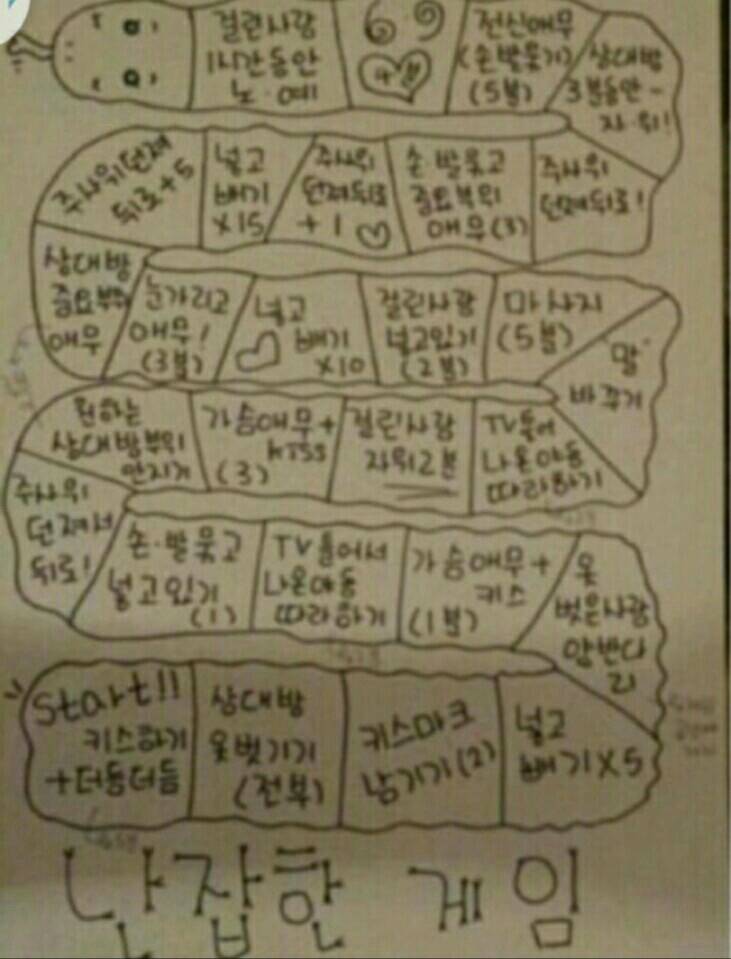 start!!
키스하기
+더듬더듬
상대방
옷벗기기
(전부)
키스마크
남기기(2)
넣고
빼기X5
옷
벗은사람
앞반다
리
가슴애무+
키스
(1분)
TV틀어서
나온야동
따라하기
손·발묶고
넣고있기
(1)
주사위
던져서
뒤로!
원하는
상대방부위
만지기
가슴애무+
kiss
(3)
걸린사람
자위2분
TV틀어
나온야동
따라하기
"말"
바꾸기
마사지
(5분)
걸린사람
넣고있기
(2분)
넣고
빼기
X10
눈가리고
애무!
(3분)
상대방
중요부위
애무
주사위던져
뒤로+5
넣고
빼기
X15
주사위
던져뒤로
+1
손·발묶고
중요부위
애무(3)
주사위
던져뒤로!
상대방
3분동안-
자·위!
전신애무
(손발묶기)
(5분)
69
걸린사람
1시간동안
노·예
난잡한 게임